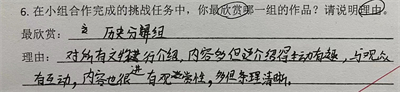 6. 在小组合作完成的挑战任务中，你最欣赏哪一组的作品？请说明理由。
最欣赏： 历史分解组
理由：对所有文物进行介绍，内容多但这介绍得生动有趣，与观众
有互动，内容也很有观赏性，多但条理清晰。